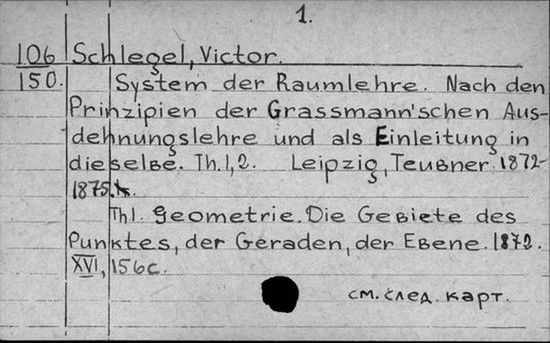 1.
106 Schlegel, Victor.
150. System der Raumlehre. Nach den
Prinzipien der Grassmann'schen Aus-
dehnungslehre und als Einleitung in
dieselbe. Th. 1, 2. Leipzig, Teubner 1872-
1875.
Th 1. Geometrie. Die Gebiete des
Punktes, der Geraden, der Ebene. 1872.
XVI, 156c.
см. след. карт.